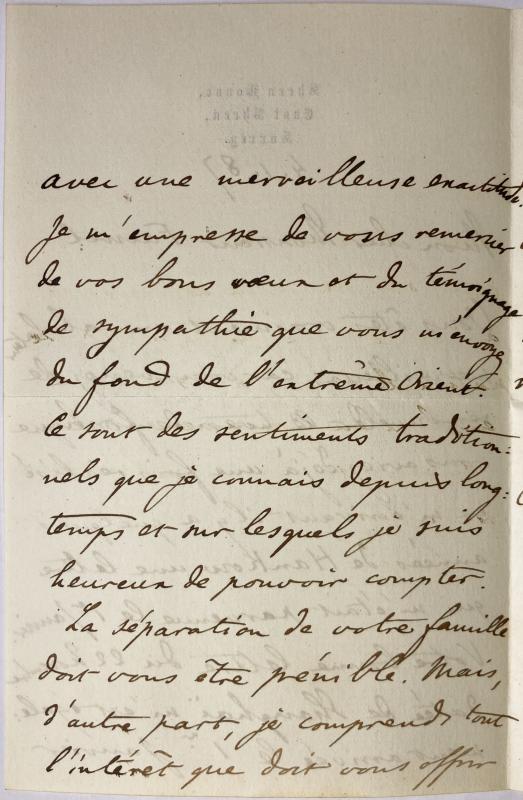 avec une merveilleuse exactitude.
Je m'empresse de vous remercier
de vos bons vœux et du témoignage
de sympathie que vous m'envoyez
du fond de l'extrême Orient.
Ce sont des sentiments tradition:
nels que je connais depuis long:
temps et sur lesquels je suis
heureux de pouvoir compter.
La séparation de votre famille
doit vous être pénible. Mais,
d'autre part, je comprends tout
l'intérêt que doit vous offrir